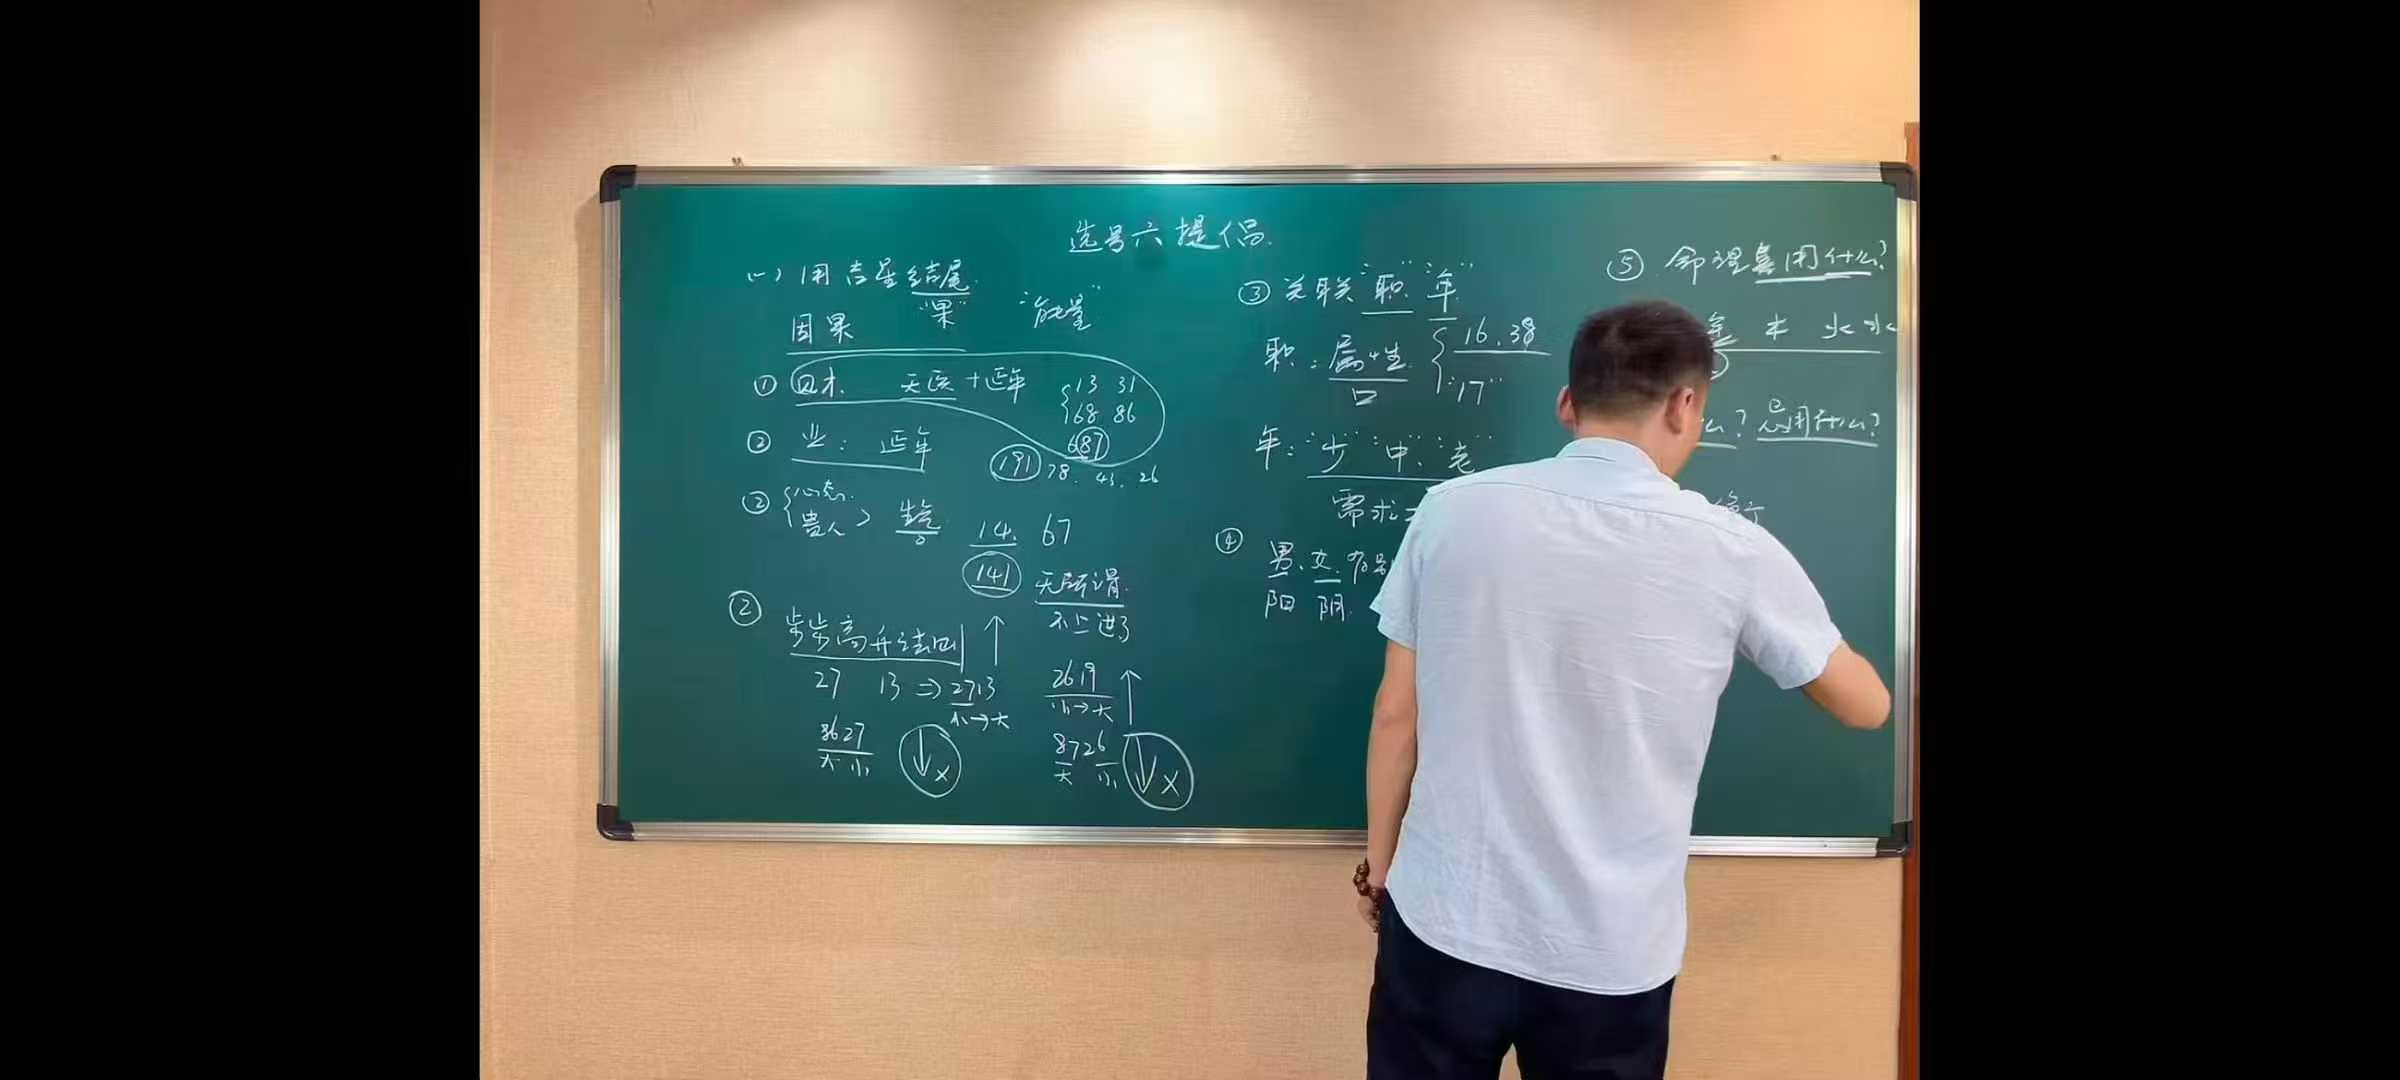 选号六提倡
(一) 用吉星结尾
"果" "能量"
因果
① 财 天医+延年 13 31
68 86
687
② 业: 延年 191 78. 43. 26
③ 心态. 贵人 生气 14. 67
141 无所谓.
不上进了
② 步步高升法则 ↑
27 13 ⇒ 2713 2619 ↑
小→大 小→大
8627 ↓× 8726 ↓×
大 小 大 小
③ 关联"职""年"
职: 属性 16.38
口 "17"
年: "少""中""老"
需求
④ 男、女.
阳 阴.
⑤ 命理喜用什么?
金 木 水 火
么? 忌用什么?